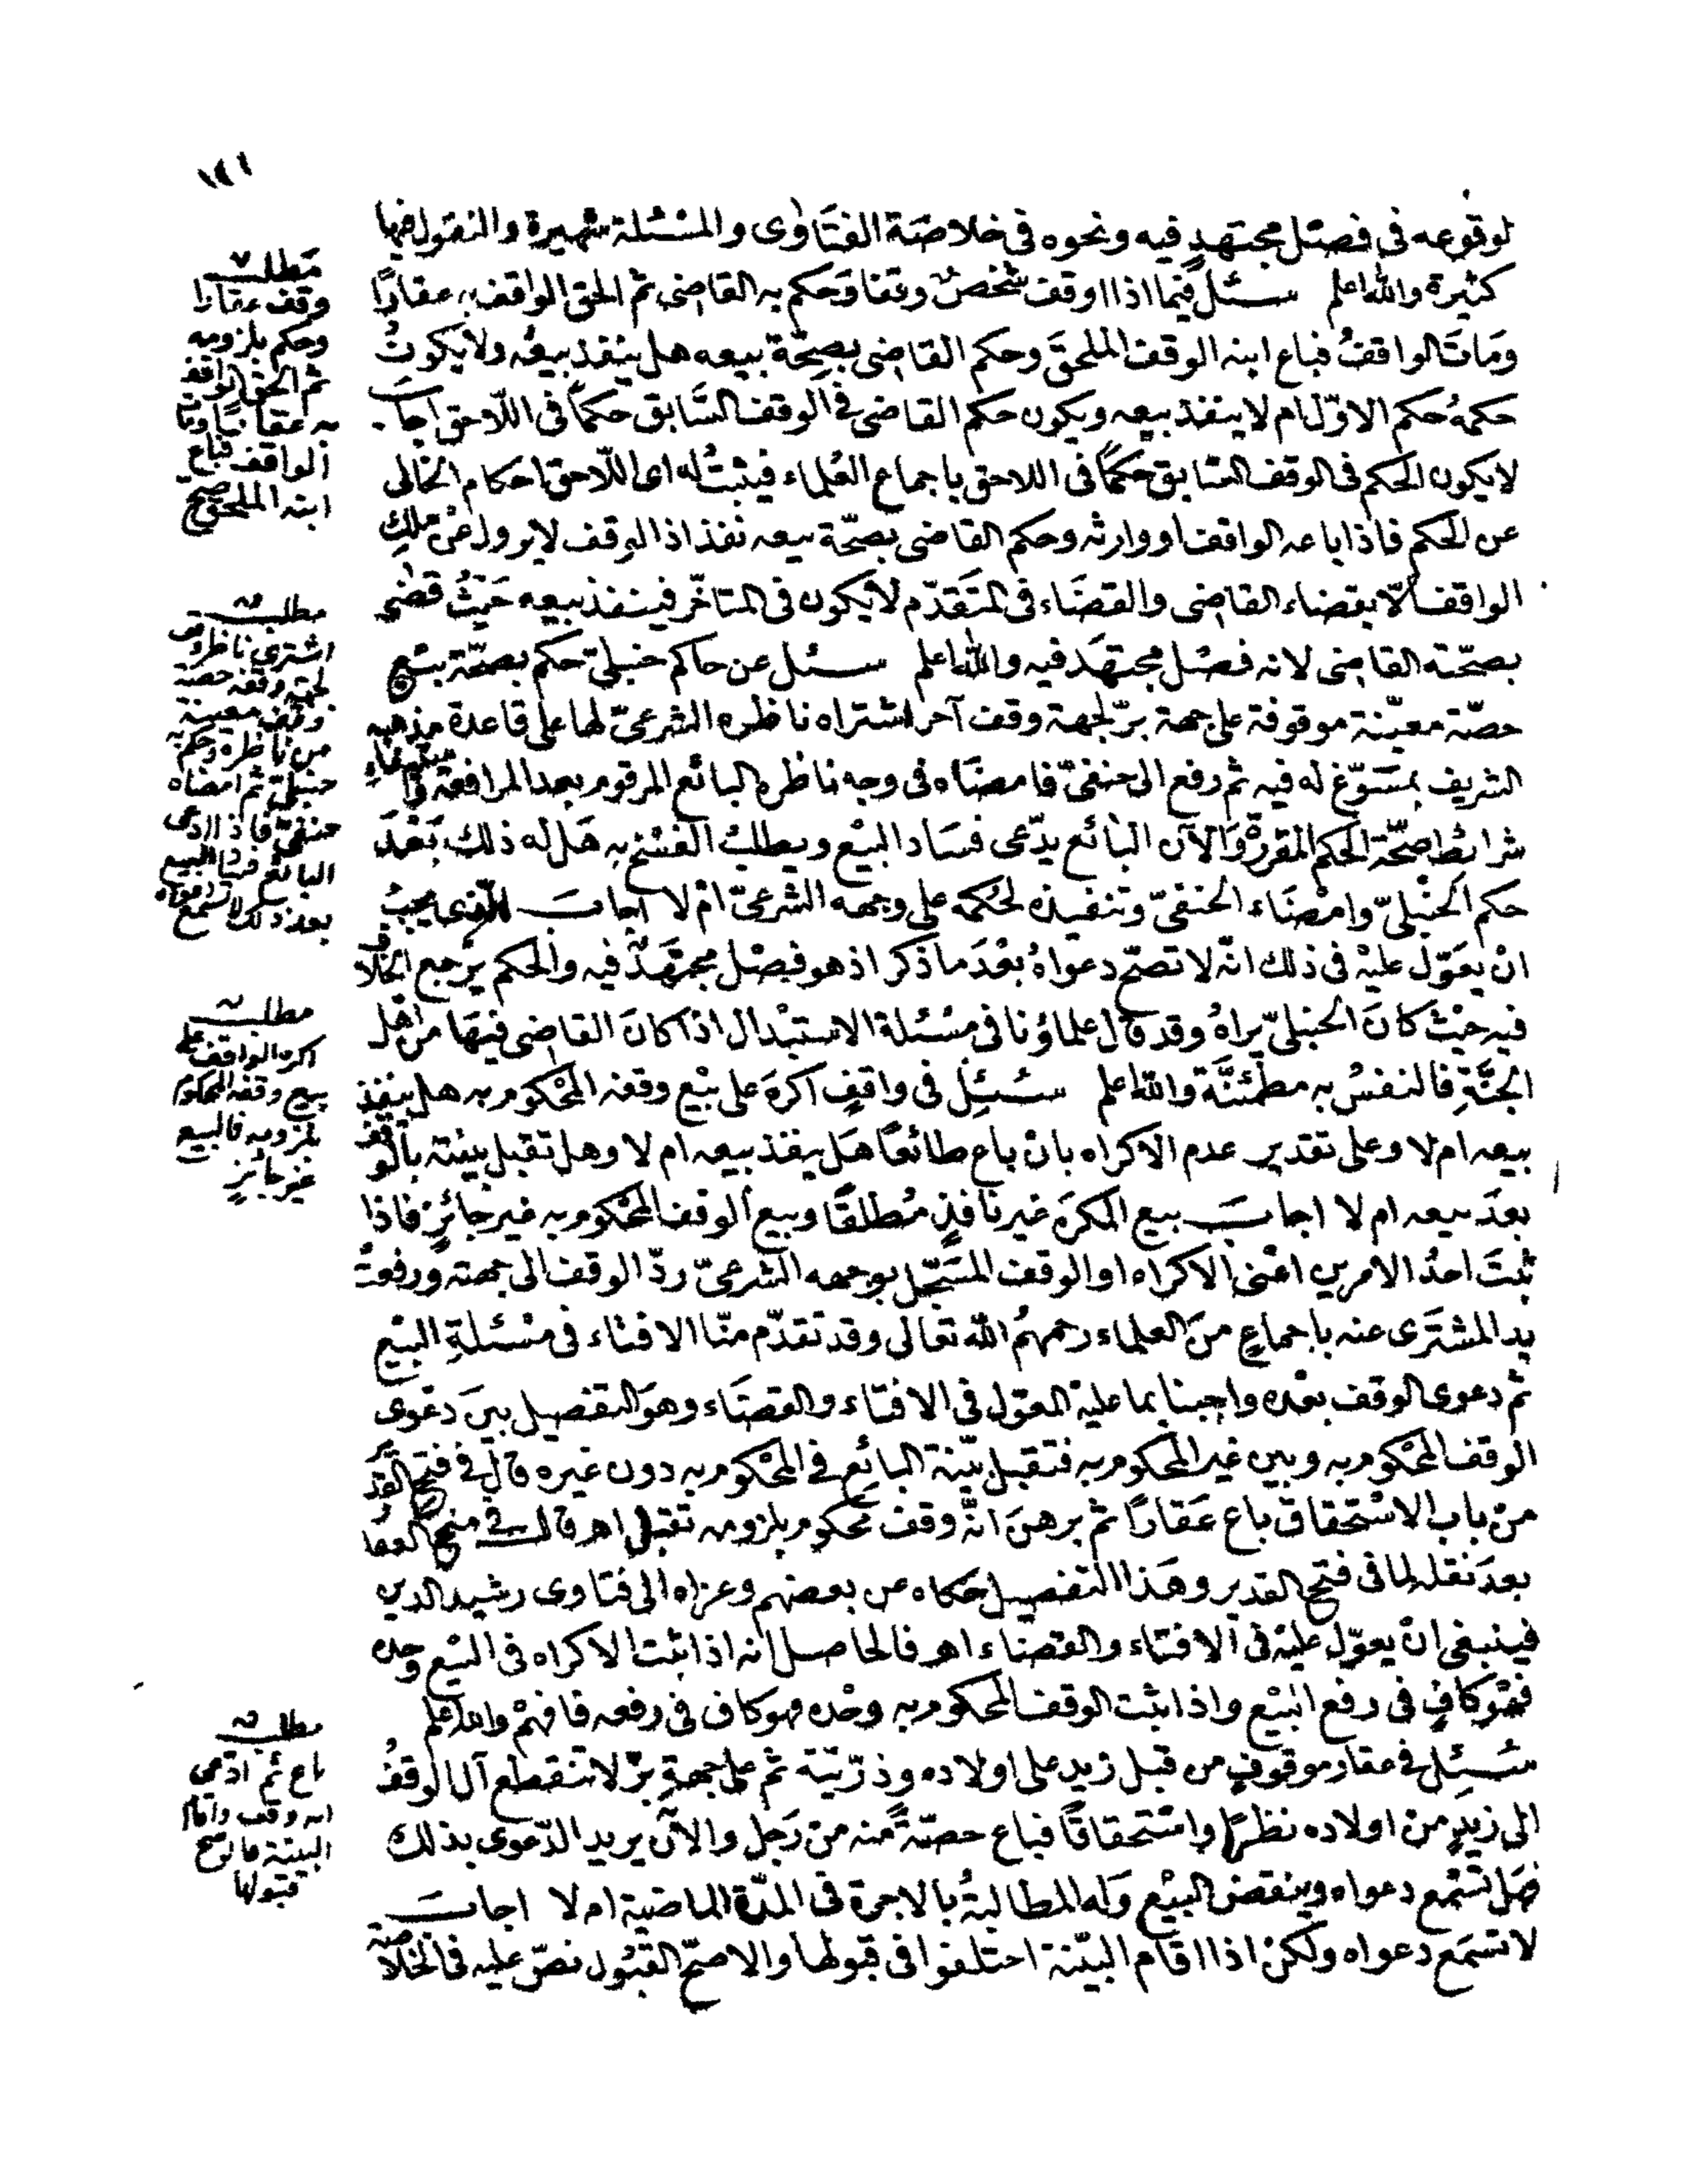 ١٤١
لوقوعه في فصل مجتهد فيه ونحوه في خلاصة الفتاوى والمسئلة شهيرة والنقول فيها
كثيرة والله اعلم سئل فيما اذا اوقف شخص وقفا وحكم به القاضى ثم الحق الواقف به عقارًا
ومات الواقف فباع ابنه الوقف الملحق وحكم القاضى بصحة بيعه هل ينفذ بيعه ولا يكون
حكمه حكم الاوّل ام لا ينفذ بيعه ويكون حكم القاضى في الوقف السّابق حكمًا فى اللّاحق اجاب
لا يكون الحكم فى الوقف السّابق حكمًا فى اللاحق باجماع العلماء فيثبت له اى اللّاحق احكام الخالى
عن الحكم فاذا باعه الواقف او وارثه وحكم القاضى بصحّة بيعه نفذ اذ الوقف لا يزول عن ملك
الواقف الّا بقضاء القاضى والقضاء فى المتقدّم لا يكون فى المتاخّر فينفذ بيعه حيث قضى
بصحّته القاضى لانه فصل مجتهد فيه والله اعلم سئل عن حاكم حنبلىّ حكم بصحّة بيع
حصّة معيّنة موقوفة على جهة برّ لجهة وقف آخر اشتراه ناظره الشرعىّ لها على قاعدة مذهبه
الشريف بمسوّغ له فيه ثم رفع الى حنفىّ فامضاه فى وجه ناظره البائع المرقوم بعد المرافعة
شرائط صحّة الحكم المقررة والآن البائع يدّعى فساد البيع ويطلب الفسخ به هل له ذلك بعد
حكم الحنبلىّ وامضاء الحنفىّ وتنفيذه لحكمه على وجهه الشرعىّ ام لا اجاب الذى يجب
ان يعوّل عليه فى ذلك انّه لا تصحّ دعواه بعد ما ذكر اذ هو فصل مجتهد فيه والحكم يرجع الخلاف
فيه حيث كان الحنبلىّ يراه وقد قال علماؤنا فى مسئلة الاستبدال اذا كان القاضى فيها من اهل
الجنّة فالنفس به مطمئنّة والله اعلم سئل فى واقف اكره على بيع وقفه المحكوم به هل ينفذ
بيعه ام لا وعلى تقدير عدم الاكراه بان باع طائعًا هل ينفذ بيعه ام لا وهل تقبل بينته بالوقف
بعد بيعه ام لا اجاب بيع المكره غير نافذ مطلقًا وبيع الوقف المحكوم به غير جائز فاذا
ثبت احد الامرين اعنى الاكراه او الوقف المسجّل بوجهه الشرعىّ ردّ الوقف الى جهته ورفعت
يد المشترى عنه باجماع من العلماء رحمهم الله تعالى وقد تقدّم منّا الافتاء فى مسئلة البيع
ثم دعوى الوقف بعده واجبنا بما عليه المعوّل فى الافتاء والقضاء وهو التفصيل بين دعوى
الوقف المحكوم به وبين غير المحكوم به فتقبل بيّنة البائع في المحكوم به دون غيره قال في فتح القدير
من باب الاستحقاق باع عقارًا ثم برهن انّه وقف محكوم بلزومه تقبل اهـ قال في منح الغفار
بعد نقله لما فى فتح القدير وهذا التفصيل حكاه عن بعضهم وعزاه الى فتاوى رشيد الدين
فينبغى ان يعوّل عليه فى الافتاء والقضاء اهـ فالحاصل انه اذا ثبت الاكراه فى البيع وحده
فهو كاف فى رفع البيع واذا ثبت الوقف المحكوم به وحده فهو كاف فى رفعه فافهم والله اعلم
سئل في عقار موقوف من قبل زيد على اولاده وذرّيّته ثم على جهة برّ لا تنقطع آل الوقف
الى زيد من اولاده نظرا واستحقاقًا فباع حصّة منه من رجل والآن يريد الدّعوى بذلك
هل تسمع دعواه وينقض البيع وله المطالبة بالاجرة فى المدّة الماضية ام لا اجاب
لا تسمع دعواه ولكن اذا اقام البيّنة اختلفوا فى قبولها والاصحّ القبول نصّ عليه فى الخلاصة
مطلب
وقف عقارا
وحكم بلزومه
ثم الحق الواقف
به عقارًا ومات
الواقف فباع
ابنه الملحق صح
مطلب
اشترى ناظر وقف
لجهة وقفه حصة
وقف معينة
من ناظره وحكم به
حنبلىّ ثم امضاه
حنفىّ فاذا ادعى
البائع فساد البيع
بعد ذلك لا تسمع دعواه
مطلب
اكره الواقف على
بيع وقفه المحكوم
بلزومه فالبيع
غير جائز
مطلب
باع ثم ادّعى
انه وقف واقام
البيّنة فالاصح
قبولها